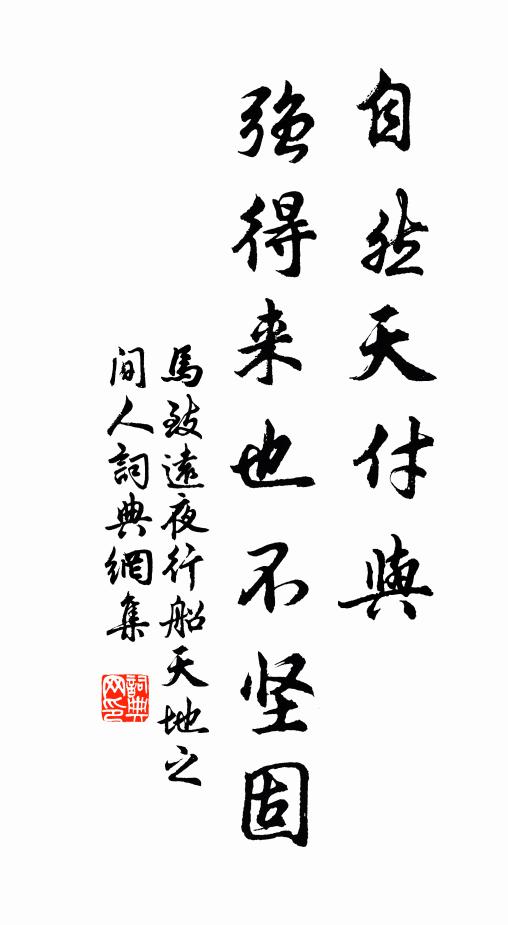 自然天付與
強得来也不坚固
馬致遠夜行船天地之
间人詞典網集
詞典網印